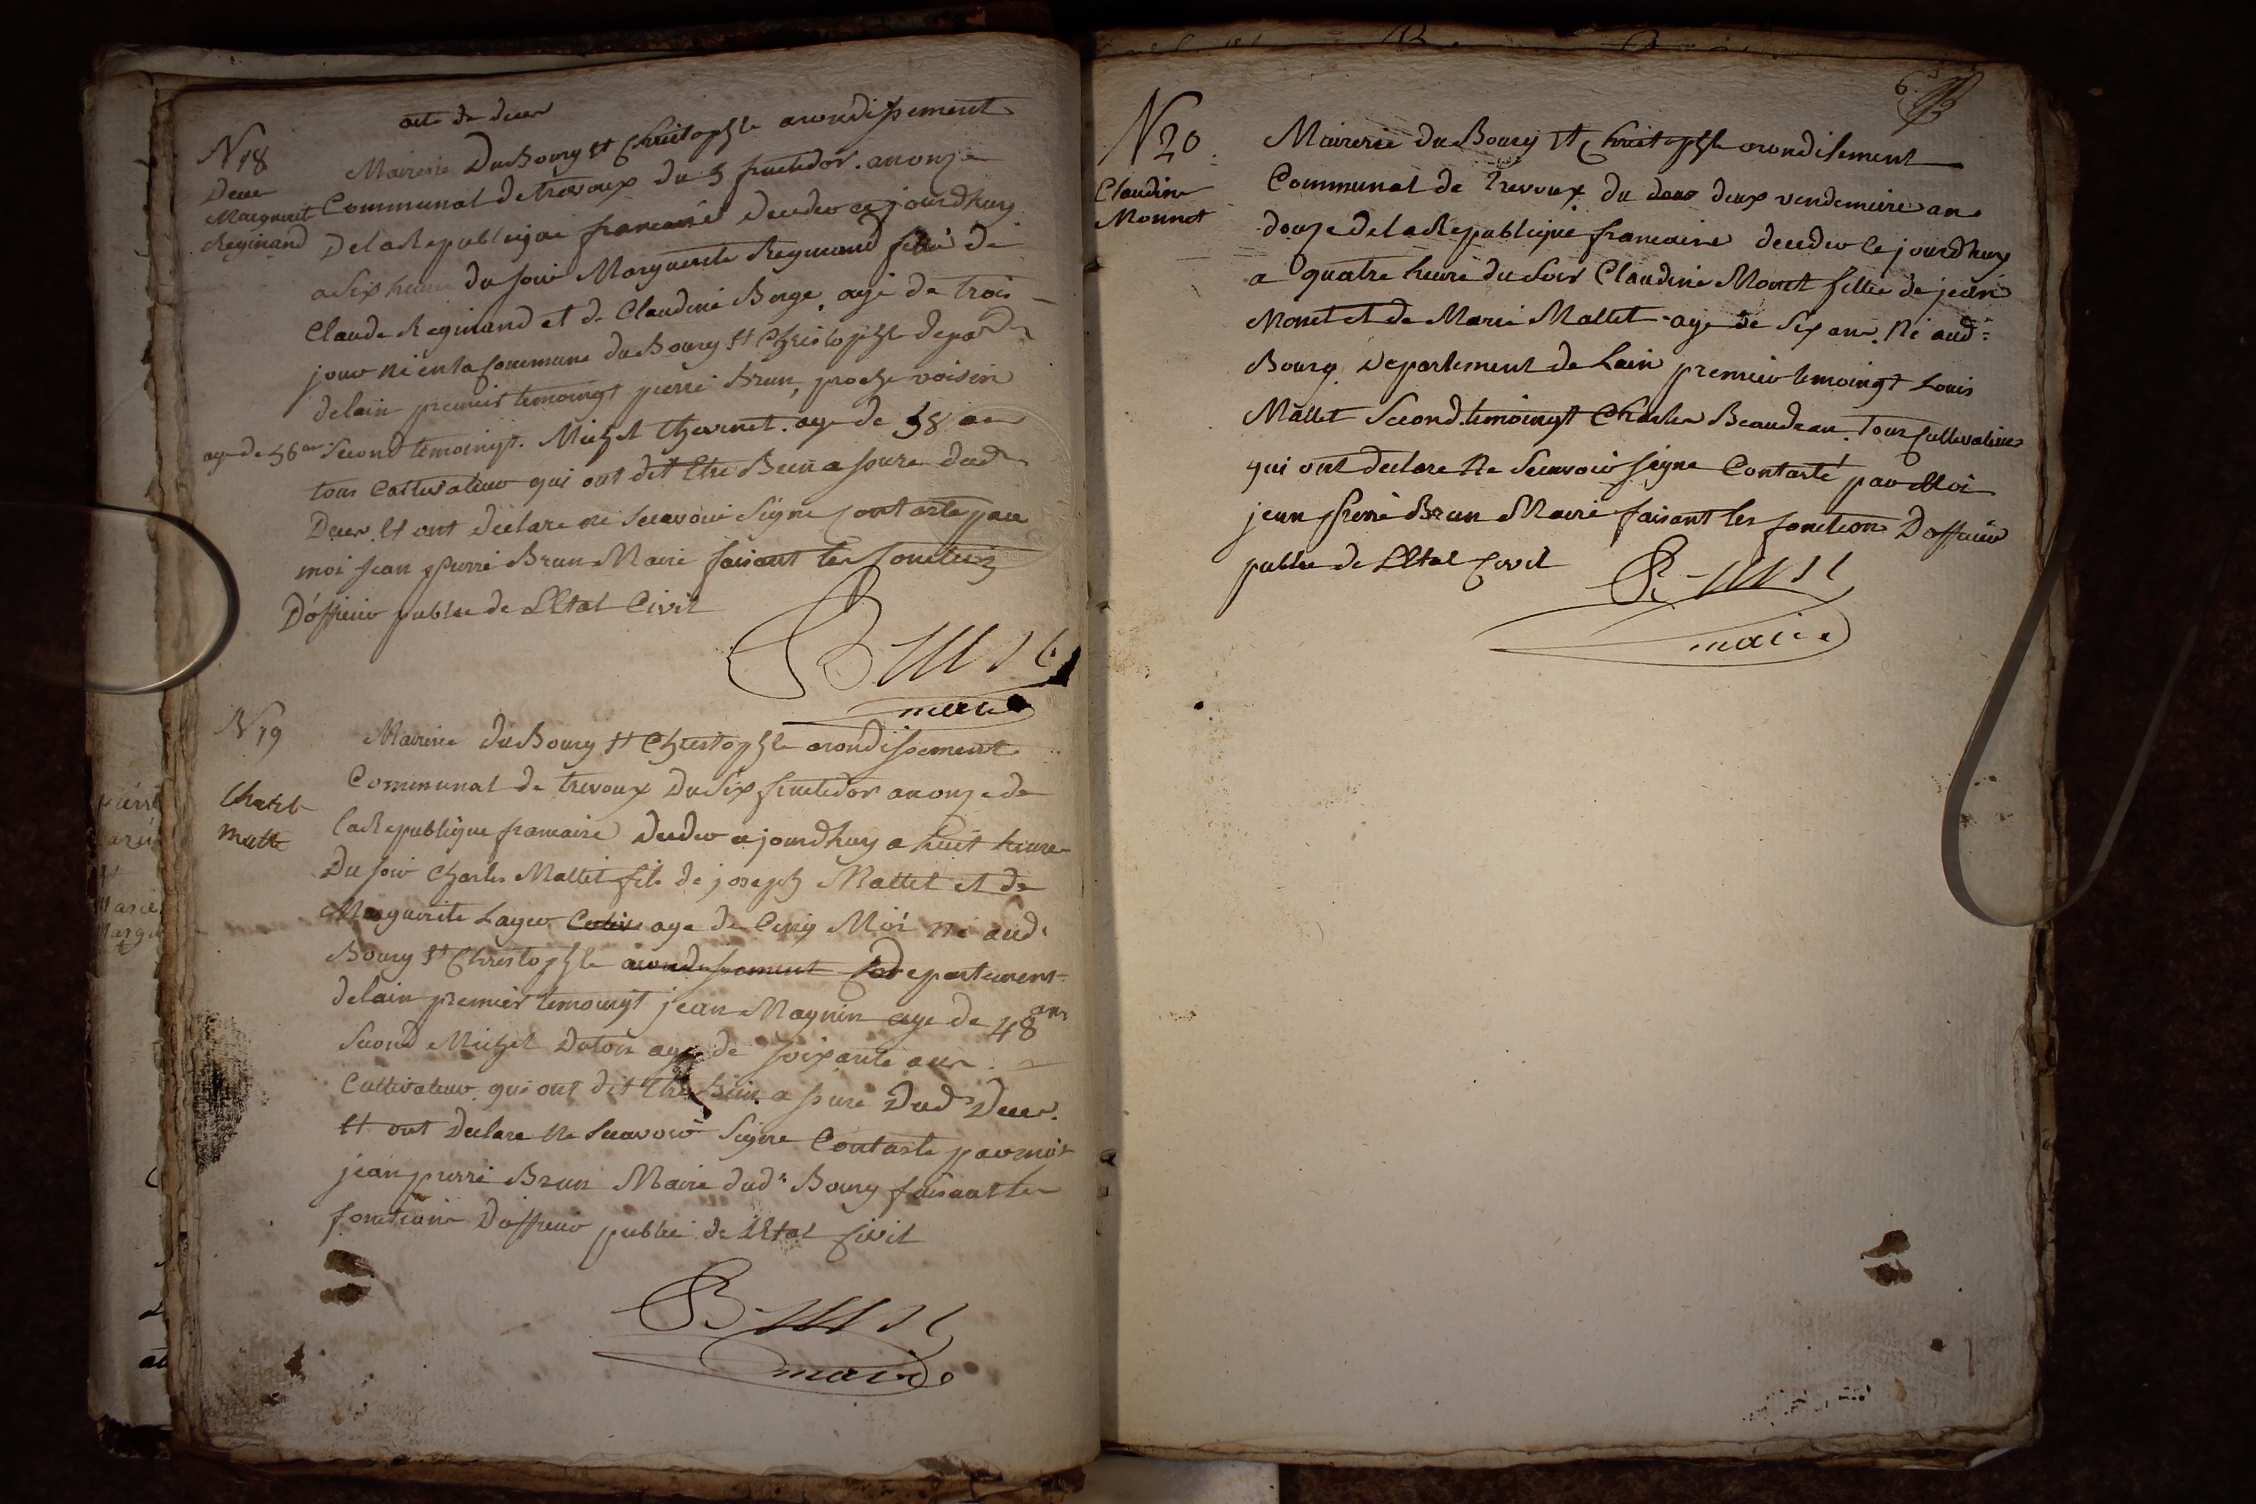 acte de deces
N 18
Deces
Marguerit
Reginand
Mairerie Du Bourg St Christophle arondissement
Communal de trevoux du 5 fructidor an onze
De la Republique francaise Decedee ajourdhuy
a Six heure du soir Marguerite Reginand fille de
Claude Reginand et de Claudine Borge agé de trois
jour né en la Commune du Bourg St Christophle depar
delain premier temoingt pierre Brun, proche voisin
age de 56 an Second temoingt. Michel Thevenet. age de 58 an
tous Cultivateur qui ont dit Etre Bien assure dud
Deces. Et ont declare ne Scavoir Signe Contaste par
moi jean pierre Brun Maire faisant les fonction
D'officier public de L'Etat Civil
Brun
maire
N 19
Charle
Malle
Mairerie du Bourg St Christophle arondissement
Communal de trevoux Du Six fructidor an onze de
la Republique francaise Decedee ajourdhuy a huit heure
Du soir Charles Mallet fils de joseph Mallet et de
Marguerite age de Cinq Moi né aud
Bourg St Christophle arondissement departement
delain premier temoingt jean Magnin age de 48 ans
Second Michel age de soixante an
Cultivateur qui ont dit Etre Bien assure Dud Deces.
Et ont Declare ne Scavoir Signe Contaste par moi
jean pierre Brun Maire dud Bourg faisant les
fonction D'officier public de L'Etat Civil
Brun
maire
6
N 20
Claudine
Monnet
Mairerie du Bourg St Christophle arondisement
Communal de Trevoux du deux vendemiere an
douze de la Republique francaise decedee le jourdhuy
a quatre heure du Soir Claudine Monet fille de jean
Monet et de Marie Mallet age de Six an. Né aud
Bourg Departement de Lain premier temoingt Louis
Mallet Second temoingt Charle Beaudean Tous Cultivateur
qui ont declare Ne Scavoir Signe Contasté par Moi
jean pierre Brun Maire faisant les fonction D'officier
public de L'Etat Civil
Brun
maire